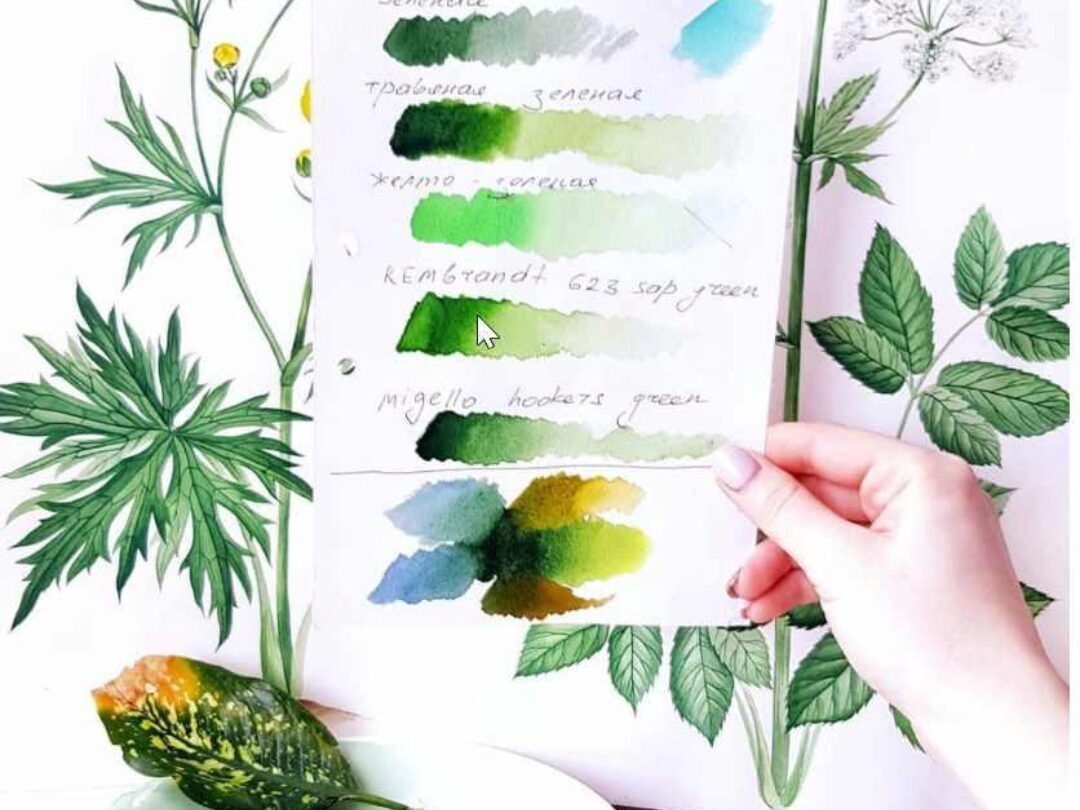 зеленая
травяная зеленая
желто - зеленая
REMBrandt 623 sap green
migello hookers green